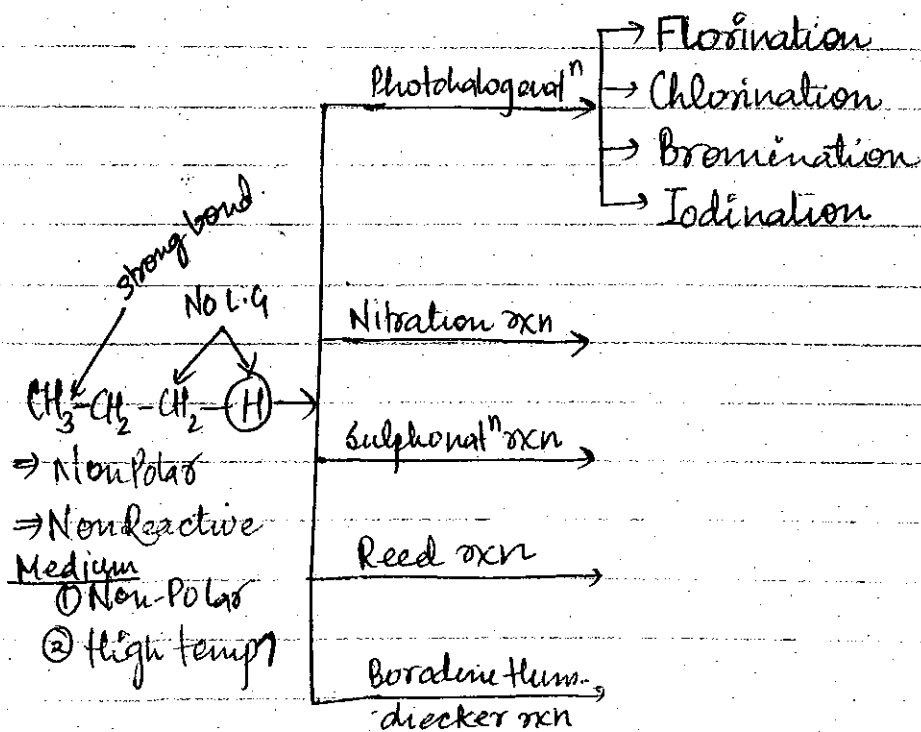 Photohalogenatⁿ
Florination
Chlorination
Bromination
Iodination
strong bond
NO L.G
CH₃-CH₂-CH₂-H
⇒ NonPolar
⇒ NonReactive
Medium
① Non-Polar
② High temp↑
Nitration rxn
Sulphonatⁿ rxn
Reed rxn
Borodine Huns-
diecker rxn